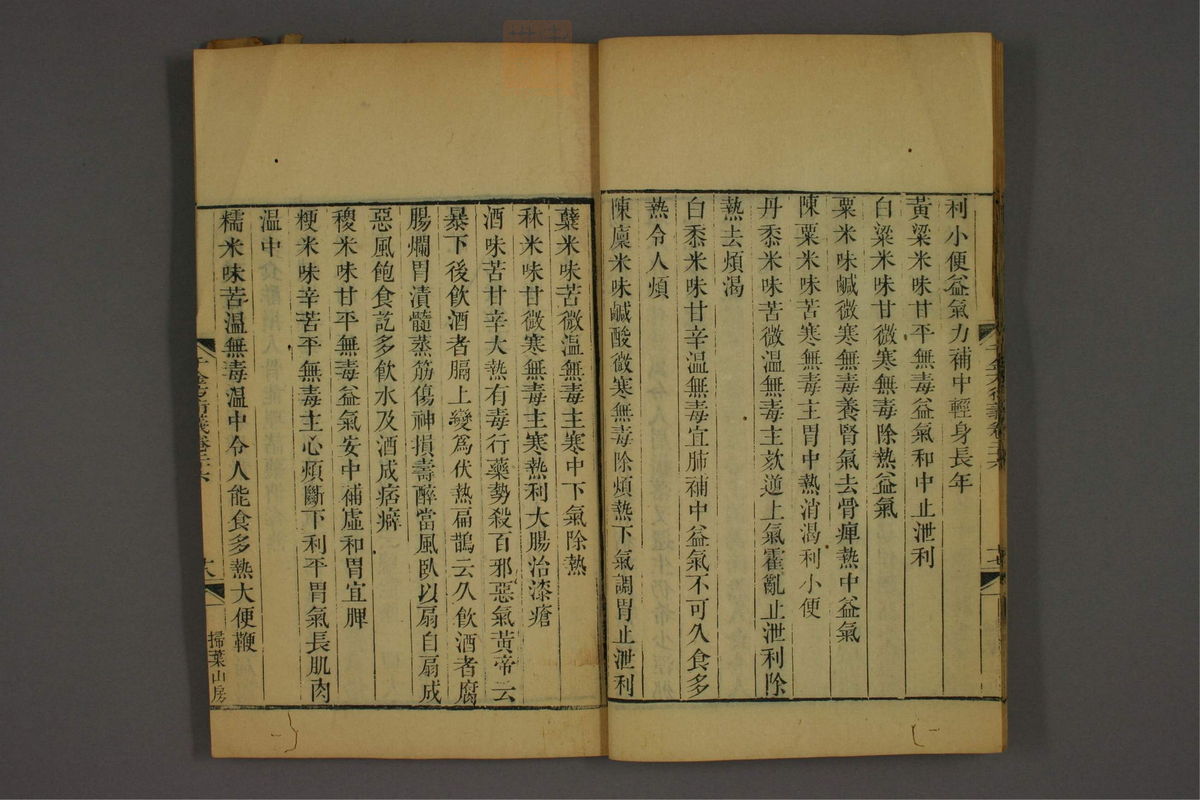 利小便益氣力補中輕身長年
黃粱米味甘平無毒益氣和中止泄利
白粱米味甘微寒無毒除熱益氣
粟米味鹹微寒無毒養腎氣去骨痺熱中益氣
陳粟米味苦寒無毒主胃中熱消渴利小便
丹黍米味苦微溫無毒主欬逆上氣霍亂止泄利除
熱去煩渴
白黍米味甘辛溫無毒宜肺補中益氣不可久食多
熱令人煩
陳廩米味鹹酸微寒無毒除煩熱下氣調胃止泄利
蘗米味苦微溫無毒主寒中下氣除熱
秫米味甘微寒無毒主寒熱利大腸治漆瘡
酒味苦甘辛大熱有毒行藥勢殺百邪惡氣黃帝云
暴下後飲酒者膈上變爲伏熱扁鵲云久飲酒者腐
腸爛胃漬髓蒸筋傷神損壽醉當風臥以扇自扇成
惡風飽食訖多飲水及酒成痞癖
稷米味甘平無毒益氣安中補虛和胃宜脾
粳米味辛苦平無毒主心煩斷下利平胃氣長肌肉
溫中
糯米味苦溫無毒溫中令人能食多熱大便鞕
千金方衍義卷二十六
掃葉山房